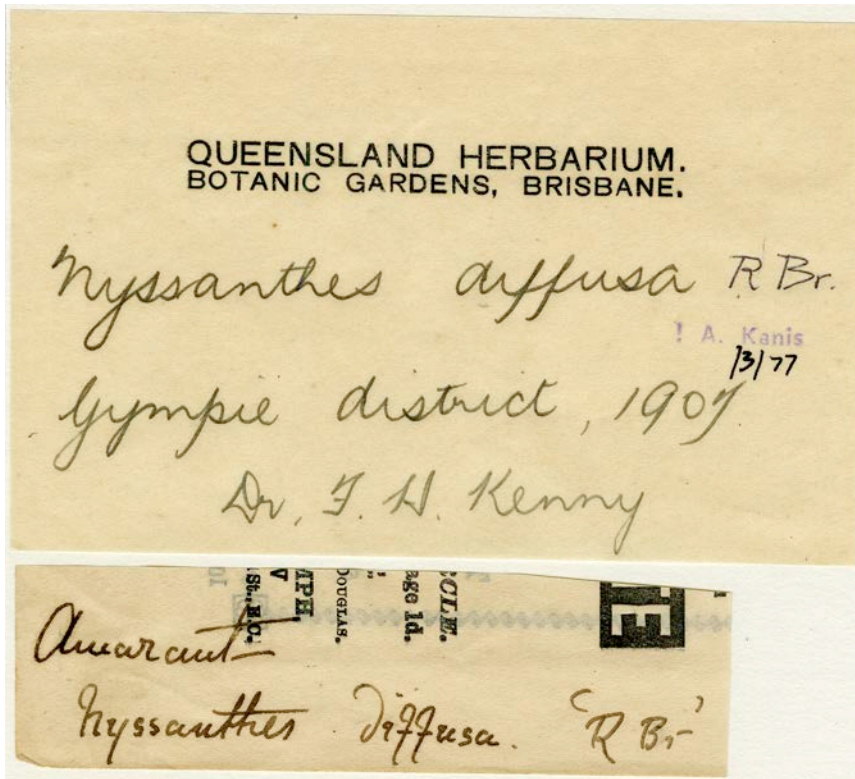 QUEENSLAND HERBARIUM.
BOTANIC GARDENS, BRISBANE.
Nyssanthes diffusa R Br.
! A. Kanis
1/3/77
Gympie district, 1907
Dr. F. H. Kenny
CLE.
age 1d.
DOUGLAS.
MPH,
St., E.C.
Amarant
Nyssanthes diffusa. 'R Br-'